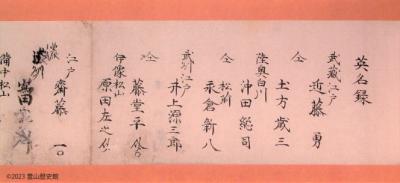 英名録
武藏江戸
近藤勇
仝
土方歳三
陸奥白川
沖田総司
仝松前
永倉新八
武州江戸
井上源三郎
仝
藤堂平助
伊豫松山
原田左之助
江戸
齋藤一
備中松山
©2023 霊山歴史館